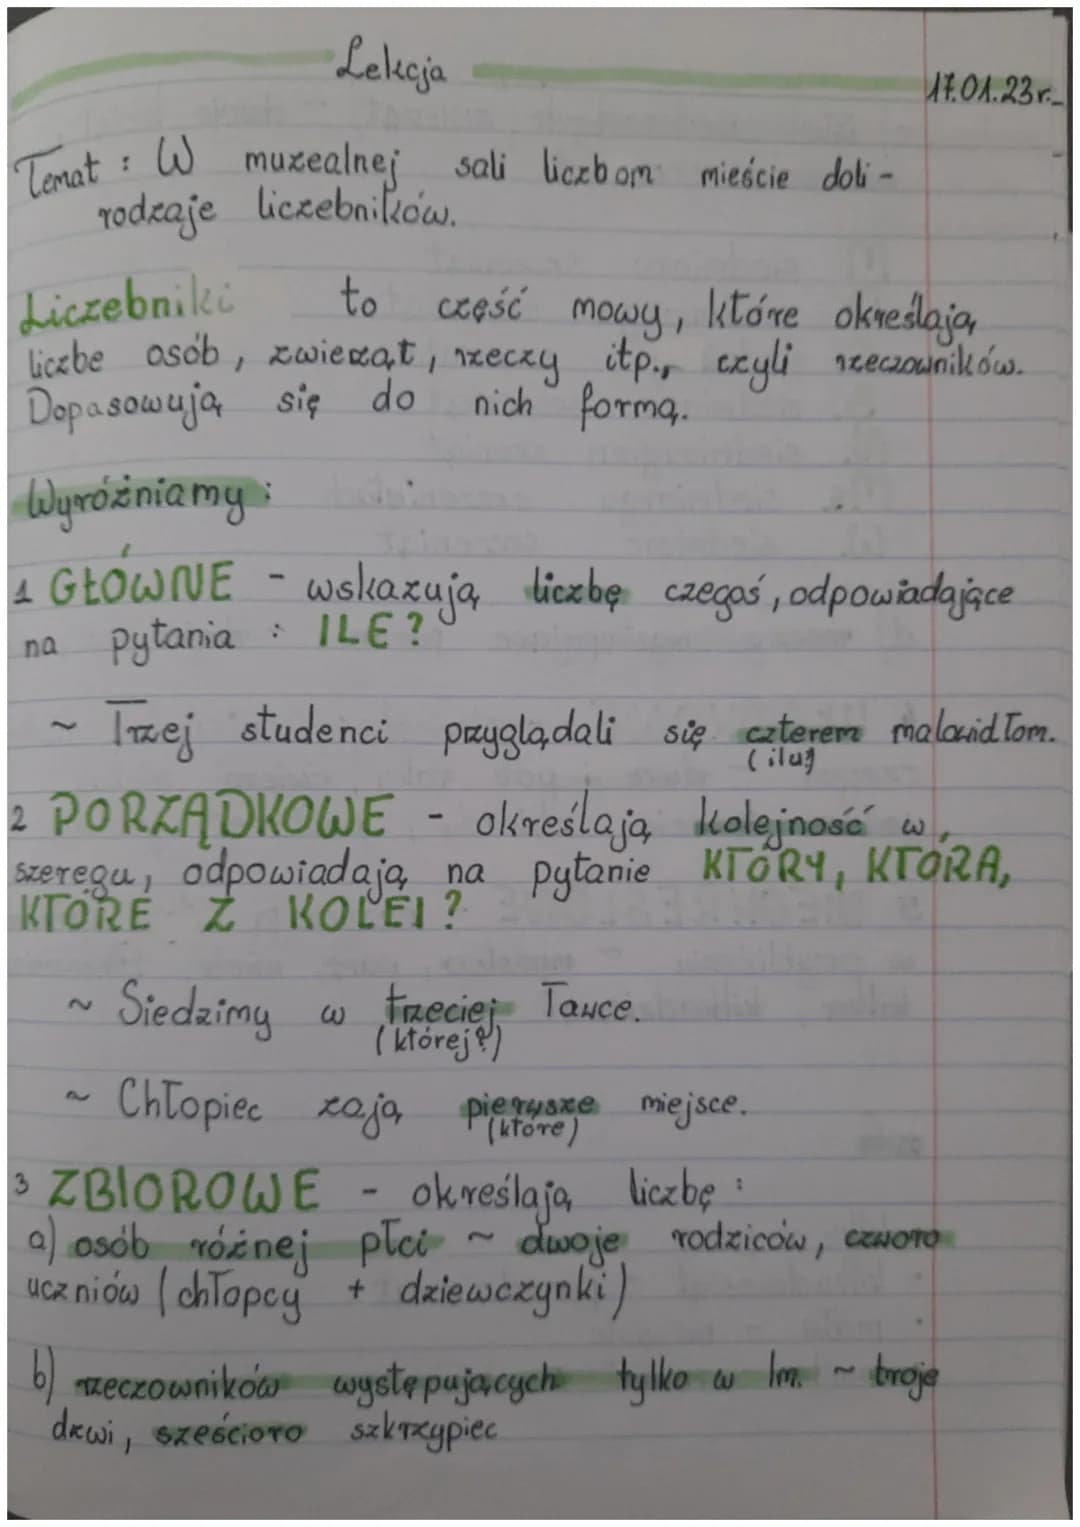 Lekcja
17.01.23r.
Temat : W muzealnej sali liczbom mieście doli -
rodzaje liczebników.
Liczebniki to część mowy, które określają
liczbe osób, zwierząt, rzeczy itp., czyli rzeczowników.
Dopasowują się do nich formą.
Wyróżniamy :
1 GŁÓWNE - wskazują liczbę czegoś, odpowiadające
na pytania : ILE ?
~ Trzej studenci przyglądali się czterem malowidłom.
2 PORZĄDKOWE - określają kolejność w
szeregu, odpowiadają na pytanie KTÓRY, KTÓRA,
KTÓRE Z KOLEI ?
~ Siedzimy w trzeciej ławce.
(której?)
~ Chłopiec zają pierwsze miejsce.
(które)
3 ZBIOROWE - określają liczbę :
a) osób różnej płci ~ dwoje rodziców, czworo
uczniów (chłopcy + dziewczynki)
b) rzeczowników występujących tylko w lm. ~ troje
drzwi, sześcioro szkrzypiec